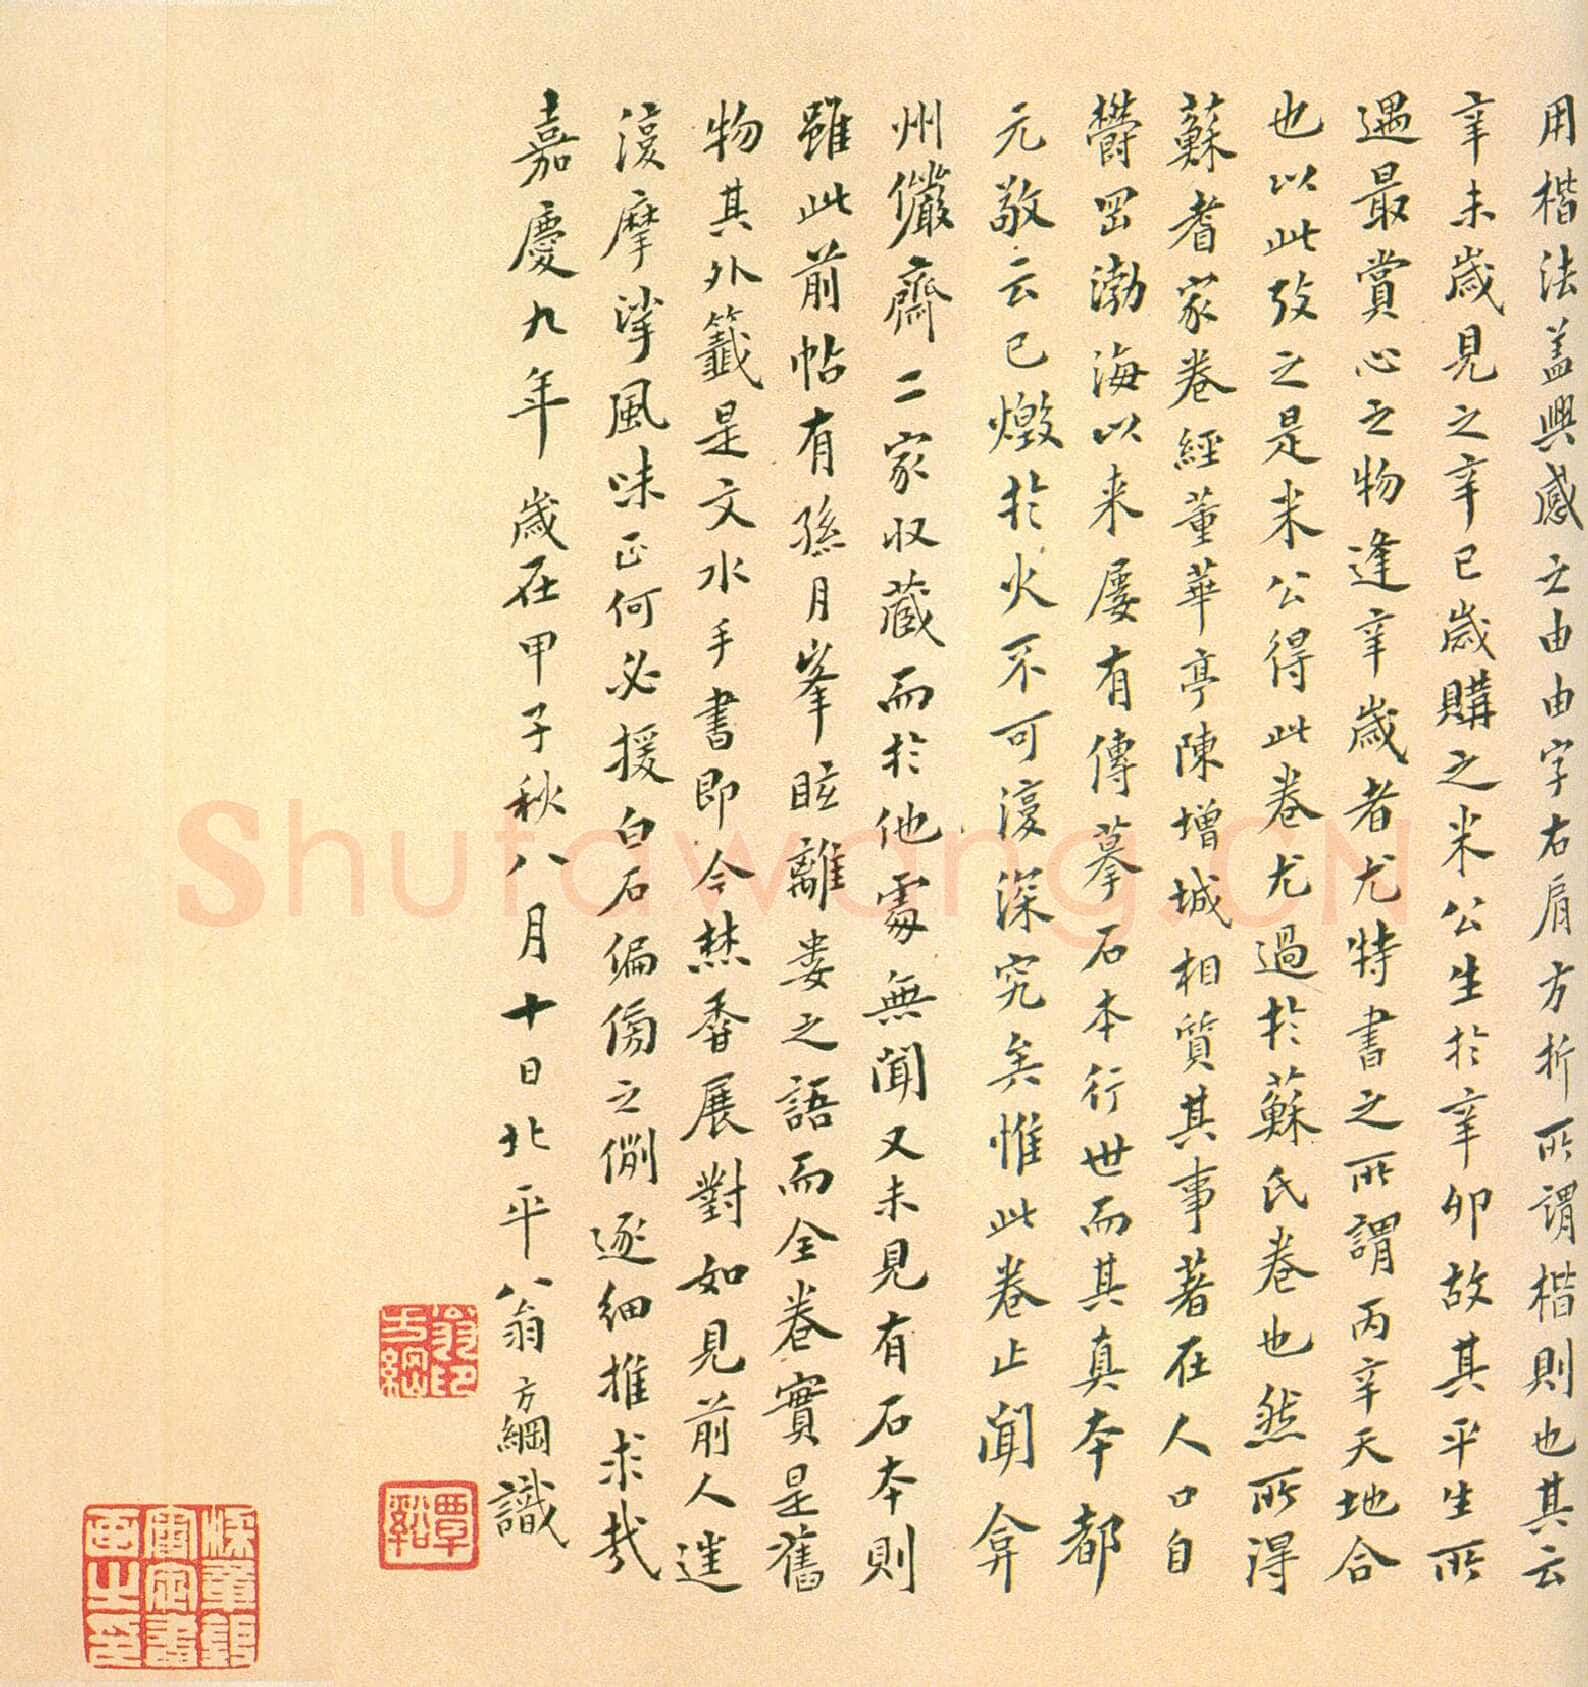 用楷法盖興感亡由由字右肩方折所謂楷則也其云
辛未歲見之辛巳歲購之米公生於辛卯故其平生所
遇最賞心之物逢辛歲者尤特書之所謂丙辛天地合
也以此攷之是米公得此卷尤過於蘇氏卷也然所得
蘇耆家卷經董華亭陳增城相質其事著在人口自
鬱岡渤海以来屢有傳摹石本行世而其真本都
元敬云已燬於火不可復深究矣惟此卷止聞弇
州儼齋二家収蔵而於他處無聞又未見有石本則
雖此前帖有孫月峯眩離婁之語而全卷實是舊
物其外籤是文水手書即今焚香展對如見前人遝
復摩挲風味正何必援白石偏傍之例逐細推求哉
嘉慶九年歲在甲子秋八月十日北平翁方綱識
翁印方綱
覃谿
Shufawang.CN